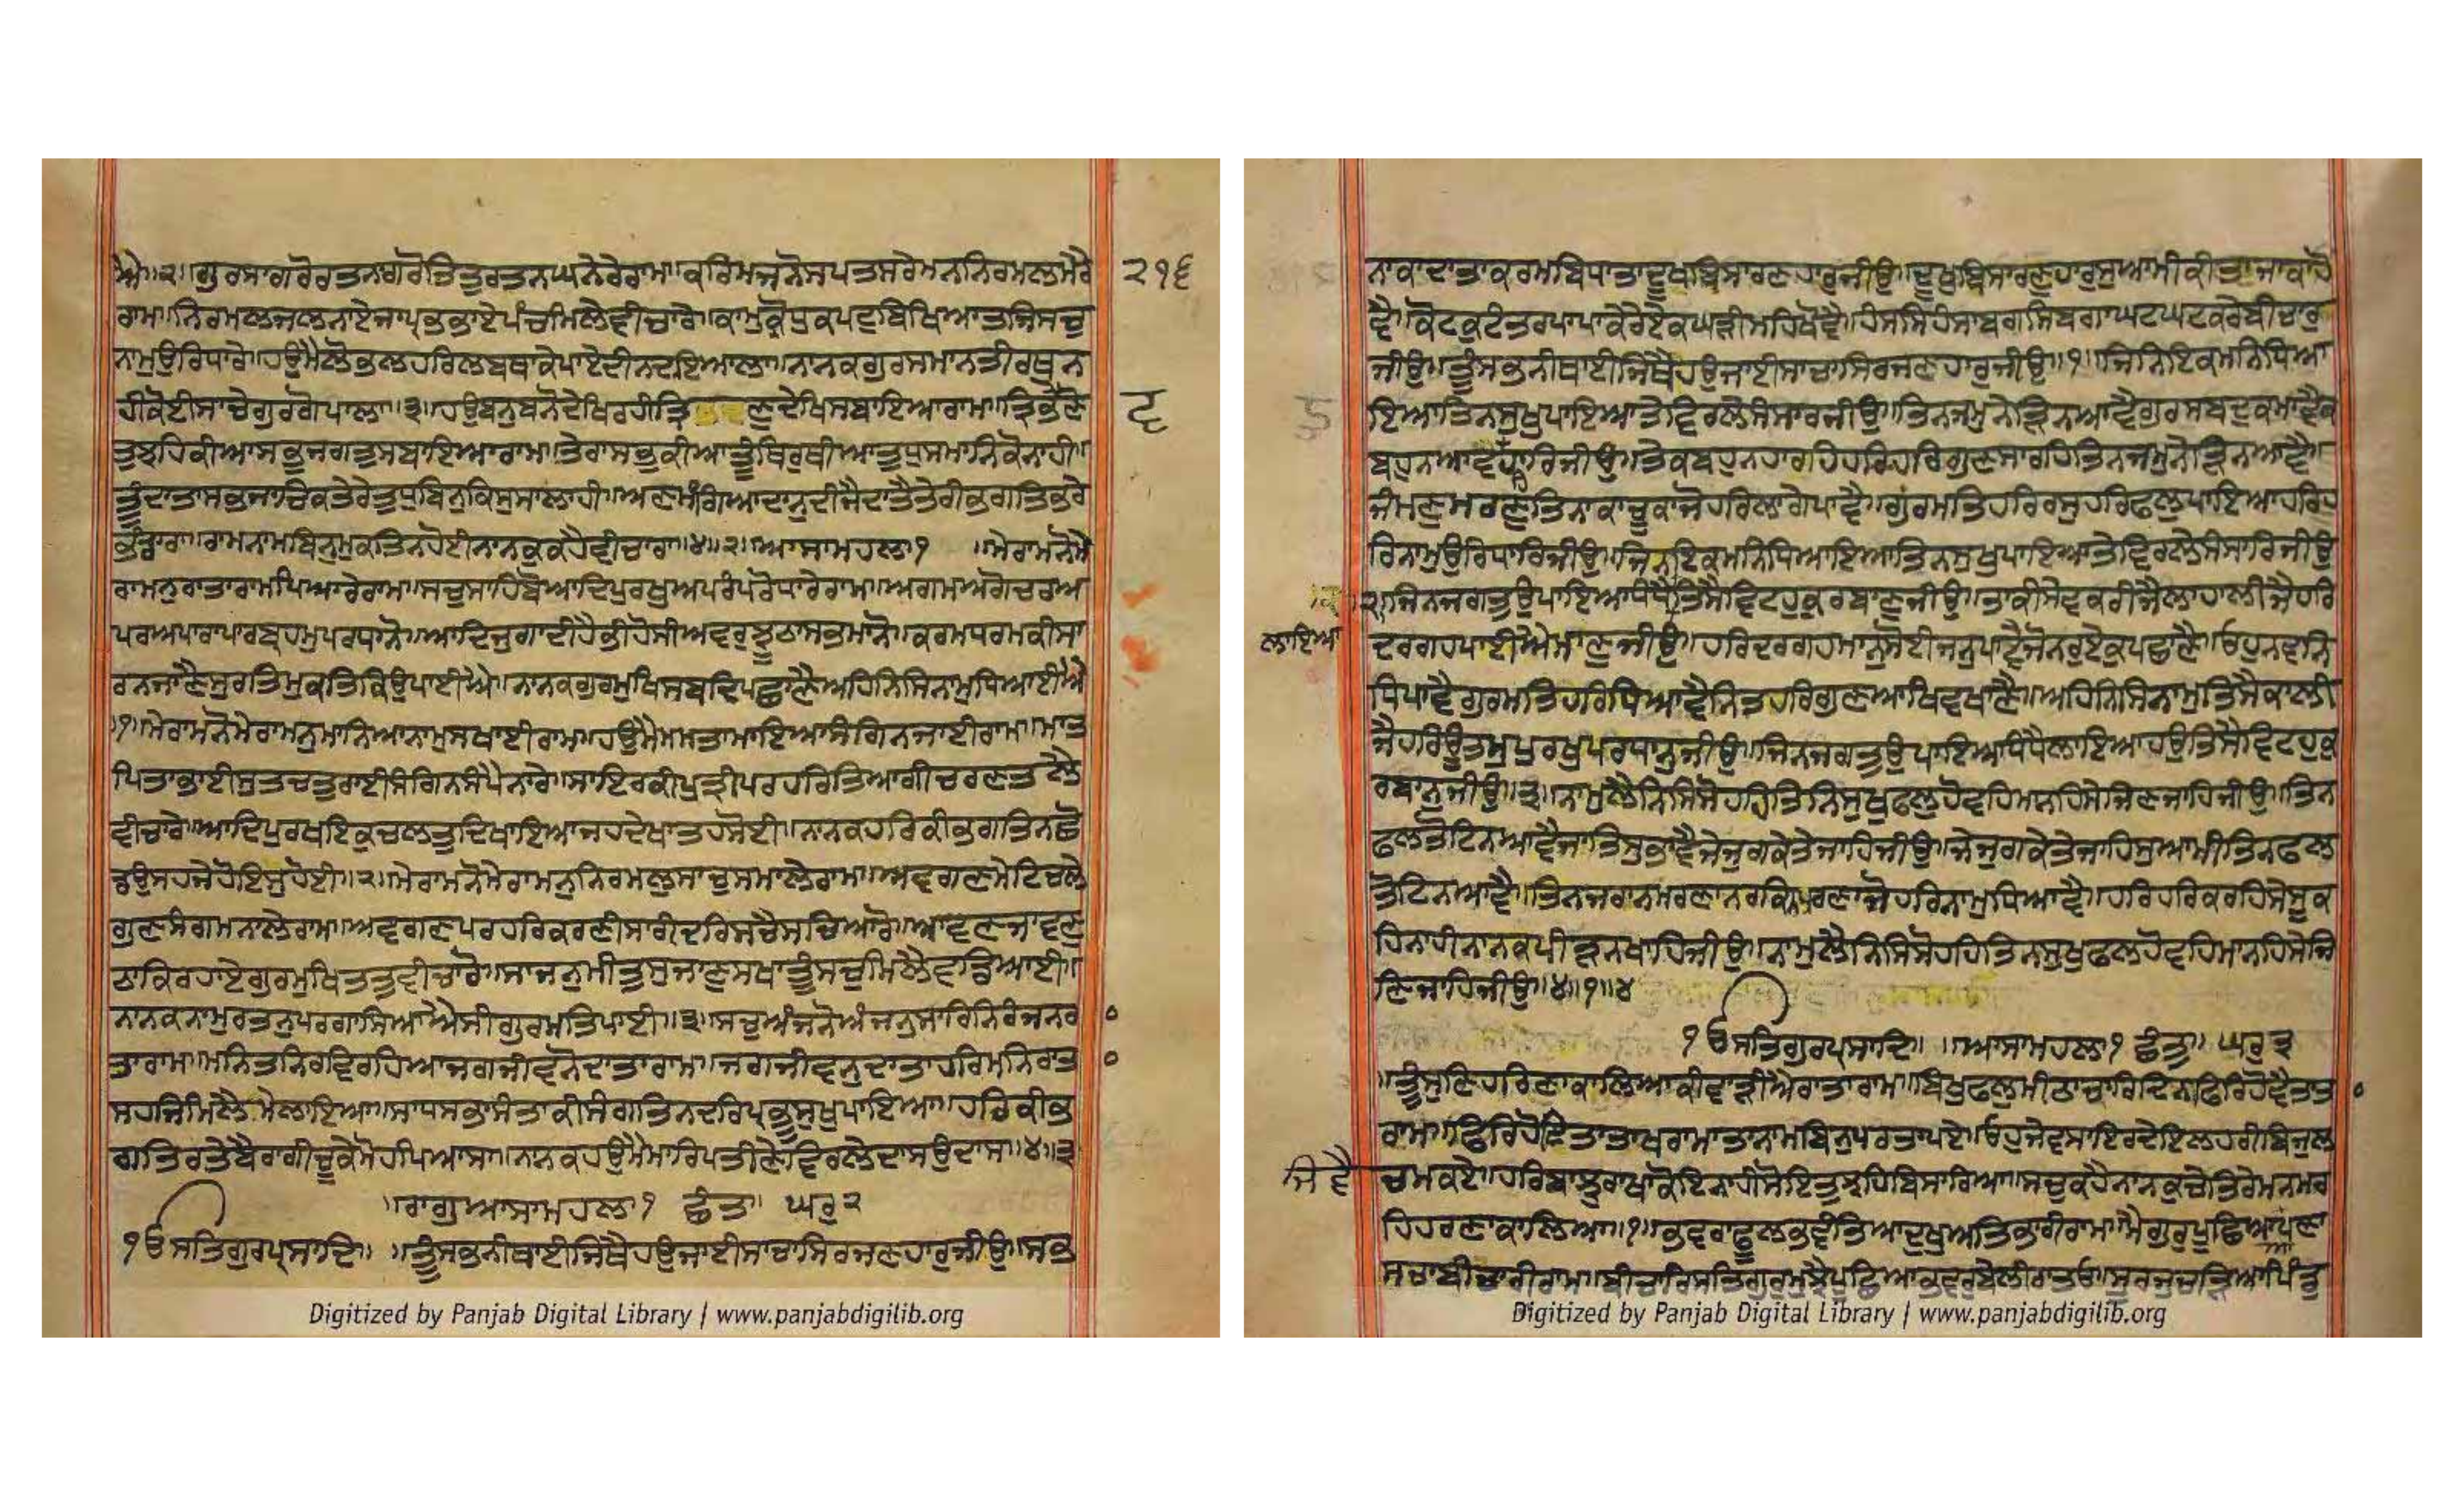 ਐ॥੨॥ਗੁਰਸਾਗਰੋਰਤਨਾਗਰੋਤਿਤੁਰਤਨਘਨੇਰੇਰਾਮ॥ਕਰਿਮਜਨੋਸਪਤਸਰੇਮਨਨਿਰਮਲਮੇਰੇ
ਰਾਮ॥ਨਿਰਮਲਜਲਨਾਏਜਾਪ੍ਰਭਭਾਏਪੰਚਮਿਲੇਵੀਚਾਰੇ॥ਕਾਮੁਕ੍ਰੋਧੁਕਪਟੁਬਿਖਿਆਤਜਿਸਚੁ
ਨਾਮੁਉਰਿਧਾਰੇ॥ਹਉਮੈਲੋਭਲਹਰਿਲਬਥਾਕੇਪਾਏਦੀਨਦਇਆਲਾ॥ਨਾਨਕਗੁਰਸਮਾਨਤੀਰਥੁਨ
ਹੀਕੋਈਸਾਚੇਗੁਰਗੋਪਾਲਾ॥੩॥ਹਉਬਨੁਬਨੋਦੇਖਿਰਹੀਤ੍ਰਿਣੁਦੇਖਿਸਬਾਇਆਰਾਮ॥ਤ੍ਰਿਭਵਣੋ
ਤੁਝਹਿਕੀਆਸਭੁਜਗਤੁਸਬਾਇਆਰਾਮ॥ਤੇਰਾਸਭੁਕੀਆਤੂੰਥਿਰੁਥੀਆਤੁਧੁਸਮਾਨਿਕੋਨਾਹੀ॥
ਤੂੰਦਾਤਾਸਭਜਾਚਿਕਤੇਰੇਤੁਧੁਬਿਨੁਕਿਸੁਸਾਲਾਹੀ॥ਅਣਮੰਗਿਆਦਾਨੁਦੀਜੈਦਾਤੈਤੇਰੀਭਗਤਿਭਰੇ
ਭੰਡਾਰਾ॥ਰਾਮਨਾਮਬਿਨੁਮੁਕਤਿਨਹੋਈਨਾਨਕੁਕਹੈਵੀਚਾਰਾ॥੪॥੨॥ਆਸਾਮਹਲਾ੧ ॥ਮੇਰਾਮਨੋਮੇ
ਰਾਮਨੁਰਾਤਾਰਾਮਪਿਆਰੇਰਾਮ॥ਸਚੁਸਾਹਿਬੋਆਦਿਪੁਰਖੁਅਪਰੰਪਰੋਧਾਰੇਰਾਮ॥ਅਗਮਅਗੋਚਰਅ
ਪਰਅਪਾਰਾਪਾਰਬ੍ਰਹਮੁਪਰਧਾਨੋ॥ਆਦਿਜੁਗਾਦੀਹੈਭੀਹੋਸੀਅਵਰੁਝੂਠਾਸਭਮਾਨੋ॥ਕਰਮਧਰਮਕੀਸਾ
ਰਨਜਾਣੈਸੁਰਤਿਮੁਕਤਿਕਿਉਪਾਈਐ॥ਨਾਨਕਗੁਰਮੁਖਿਸਬਦਿਪਛਾਣੈਅਹਿਨਿਸਿਨਾਮੁਧਿਆਈਐ
॥੧॥ਮੇਰਾਮਨੋਮੇਰਾਮਨੁਮਾਨਿਆਨਾਮੁਸਖਾਈਰਾਮ॥ਹਉਮੈਮਮਤਾਮਾਇਆਸੰਗਿਨਜਾਈਰਾਮ॥ਮਾਤ
ਪਿਤਾਭਾਈਸੁਤਚਤੁਰਾਈਸੰਗਿਨਸੰਪੈਨਾਰੇ॥ਸਾਇਰਕੀਪੁਤ੍ਰੀਪਰਹਰਿਤਿਆਗੀਚਰਣਤਲੈ
ਵੀਚਾਰੇ॥ਆਦਿਪੁਰਖਇਕੁਚਲਤੁਦਿਖਾਇਆਜਹਦੇਖਾਤਹਸੋਈ॥ਨਾਨਕਹਰਿਕੀਭਗਤਿਨਛੋ
ਡਉਸਹਜੇਹੋਇਸੁਹੋਈ॥੨॥ਮੇਰਾਮਨੋਮੇਰਾਮਨੁਨਿਰਮਲੁਸਾਚੁਸਮਾਲੇਰਾਮ॥ਅਵਗਣਮੇਟਿਚਲੇ
ਗੁਣਸੰਗਮਨਾਲੇਰਾਮ॥ਅਵਗਣਪਰਹਰਿਕਰਣੀਸਾਰੀਦਰਿਸਚੈਸਚਿਆਰੋ॥ਆਵਣੁਜਾਵਣੁ
ਠਾਕਿਰਹਾਏਗੁਰਮੁਖਿਤਤੁਵੀਚਾਰੋ॥ਸਾਜਨੁਮੀਤੁਸੁਜਾਣੁਸਖਾਤੂੰਸਚਿਮਿਲੈਵਡਿਆਈ॥
ਨਾਨਕਨਾਮੁਰਤਨੁਪਰਗਾਸਿਆਐਸੀਗੁਰਮਤਿਪਾਈ॥੩॥ਸਚੁਅੰਜਨੋਅੰਜਨੁਸਾਰਿਨਿਰੰਜਨਰ
ਤਾਰਾਮ॥ਮਨਿਤਨਿਰਵਿਰਹਿਆਜਗਜੀਵਨੋਦਾਤਾਰਾਮ॥ਜਗਜੀਵਨੁਦਾਤਾਹਰਿਮਨਿਰਾਤਾ
ਸਹਜਿਮਿਲੈਮੇਲਾਇਆ॥ਸਾਧਸਭਾਸੰਤਾਕੀਸੰਗਤਿਨਦਰਿਪ੍ਰਭੂਸੁਖੁਪਾਇਆ॥ਹਰਿਕੀਭ
ਗਤਿਰਤੇਬੈਰਾਗੀਚੂਕੇਮੋਹਪਿਆਸਾ॥ਨਾਨਕਹਉਮੈਮਾਰਿਪਤੀਣੇਵਿਰਲੇਦਾਸਉਦਾਸਾ॥੪॥੩
॥ਰਾਗੁਆਸਾਮਹਲਾ੧ ਛੰਤਾ॥ ਘਰੁ੨
੧ਓਸਤਿਗੁਰਪ੍ਰਸਾਦਿ॥ ॥ਤੂੰਸਭਨੀਥਾਈਜਿਥੈਹਉਜਾਈਸਾਚਾਸਿਰਜਣਹਾਰੁਜੀਉ॥ਸਭ
੨੧੬
ਨਾਕਾਦਾਤਾਕਰਮਬਿਧਾਤਾਦੂਖਬਿਸਾਰਣਹਾਰੁਜੀਉ॥ਦੂਖਬਿਸਾਰਣਹਾਰੁਸੁਆਮੀਕੀਤਾਜਾਕਾਹੋ
ਵੈ॥ਕੋਟਕੋਟੰਤਰਪਾਪਾਕੇਰੇਏਕਘੜੀਮਹਿਖੋਵੈ॥ਹੰਸਸਿਹੰਸਾਬਗਸਿਬਗਾਘਟਘਟਕਰੇਬੀਚਾਰੁ
ਜੀਉ॥ਤੂੰਸਭਨੀਥਾਈਜਿਥੈਹਉਜਾਈਸਾਚਾਸਿਰਜਣਹਾਰੁਜੀਉ॥੧॥ਜਿਨਿਇਕਮਨਿਧਿਆ
ਇਆਤਿਨਸੁਖੁਪਾਇਆਤੇਵਿਰਲੇਸੰਸਾਰਜੀਉ॥ਤਿਨਜਮੁਨੇੜਿਨਆਵੈਗੁਰਸਬਦੁਕਮਾਵੈਕ
ਬਹੁਨਆਵੈਹਾਰਿਜੀਉ॥ਤੇਕਬਹੁਨਹਾਰਹਿਹਰਿਹਰਿਗੁਣਸਾਰਹਿਤਿਨਜਮੁਨੇੜਿਨਆਵੈ॥
ਜੰਮਣੁਮਰਣੁਤਿਨਾਕਾਚੂਕਾਜੋਹਰਿਲਾਗੇਪਾਵੈ॥ਗੁਰਮਤਿਹਰਿਰਸੁਹਰਿਫਲੁਪਾਇਆਹਰਿਹ
ਰਿਨਾਮੁਉਰਿਧਾਰਿਜੀਉ॥ਜਿਨਇਕਮਨਿਧਿਆਇਆਤਿਨਸੁਖੁਪਾਇਆਤੇਵਿਰਲੇਸੰਸਾਰਿਜੀਉ
॥੨॥ਜਿਨਜਗਤੁਉਪਾਇਆਧੰਧੈਤਿਸੈਵਿਟਹੁਕੁਰਬਾਣੁਜੀਉ॥ਤਾਕੀਸੇਵਕਰੀਜੈਲਾਹਾਲੀਜੈਹਰਿ
ਲਾਇਆ
ਦਰਗਹਪਾਈਐਮਾਣੁਜੀਉ॥ਹਰਿਦਰਗਹਮਾਨੁਸੋਈਜਨੁਪਾਵੈਜੋਨਰੁਏਕੁਪਛਾਣੈ॥ਓਹੁਨਵਨਿ
ਧਿਪਾਵੈਗੁਰਮਤਿਹਰਿਧਿਆਵੈਨਿਤਹਰਿਗੁਣਆਖਿਵਖਾਣੈ॥ਅਹਿਨਿਸਿਨਾਮੁਤਿਸੈਕਾਲੀ
ਜੈਹਰਿਊਤਮੁਪੁਰਖੁਪਰਧਾਨੁਜੀਉ॥ਜਿਨਜਗਤੁਉਪਾਇਆਧੰਧੈਲਾਇਆਹਉਤਿਸੈਵਿਟਹੁਕੁ
ਰਬਾਨੁਜੀਉ॥੩॥ਨਾਮੁਲੈਨਿਸਿਸੋਹਹਿਤਿਨਿਸੁਖੁਫਲੁਹੋਵਹਿਮਾਨਹਿਸੇਜਿਣਜਾਹਿਜੀਉ॥ਤਿਨ
ਫਲਤੋਟਿਨਆਵੈਜਾਤਿਸੁਭਾਵੈਜੇਜੁਗਕੇਤੇਜਾਹਿਜੀਉ॥ਜੇਜੁਗਕੇਤੇਜਾਹਿਸੁਆਮੀਤਿਨਫਲ
ਤੋਟਿਨਆਵੈ॥ਤਿਨਜਰਾਨਮਰਣਾਨਰਕਿਨਪਰਣਾਜੋਹਰਿਨਾਮੁਧਿਆਵੈ॥ਹਰਿਹਰਿਕਰਹਿਸੇਸੂਕ
ਹਿਨਾਹੀਨਾਨਕਪੀੜਨਖਾਹਿਜੀਉ॥ਨਾਮੁਲੈਨਿਸਿਸੋਹਹਿਤਿਨਸੁਖੁਫਲਹੋਵਹਿਮਾਨਹਿਸੇਜਿ
ਣਿਜਾਹਿਜੀਉ॥੪॥੧॥੪
੧ਓਸਤਿਗੁਰਪ੍ਰਸਾਦਿ॥ ॥ਆਸਾਮਹਲਾ੧ ਛੰਤਾ॥ ਘਰੁ੩
॥ਤੂੰਸੁਣਿਹਰਿਣਾਕਾਲਿਆਕੀਵਾੜੀਐਰਾਤਾਰਾਮ॥ਬਿਖੁਫਲੁਮੀਠਾਚਾਰਿਦਿਨਫਿਰਿਹੋਵੈਤਾਤਾ
ਰਾਮ॥ਫਿਰਿਹੋਇਤਾਤਾਖਰਾਮਾਤਾਨਾਮਬਿਨੁਪਰਤਾਪਏ॥ਓਹੁਜੇਵਸਾਇਰਦੇਇਲਹਰੀਬਿਜੁਲ
ਜਿਵੈ
ਚਮਕਏ॥ਹਰਿਬਾਝੁਰਾਖਾਕੋਇਨਾਹੀਸੋਇਤੁਝਹਿਬਿਸਾਰਿਆ॥ਸਚੁਕਹੈਨਾਨਕੁਚੇਤਿਰੇਮਨਮਰ
ਹਿਹਰਣਾਕਾਲਿਆ॥੧॥ਭਵਰਾਫੂਲਭਵੰਤਿਆਦੁਖੁਅਤਿਭਾਰੀਰਾਮ॥ਮੈਗੁਰੁਪੂਛਿਆਆਪਣਾ
ਸਾਚਾਬੀਚਾਰੀਰਾਮ॥ਬੀਚਾਰਿਸਤਿਗੁਰੁਮੁਝੈਪੂਛਿਆਭਵਰੁਬੇਲੀਰਾਤਓ॥ਸੂਰਜੁਚੜਿਆਪਿੰਡੁ
Digitized by Panjab Digital Library | www.panjabdigilib.org
Digitized by Panjab Digital Library | www.panjabdigilib.org